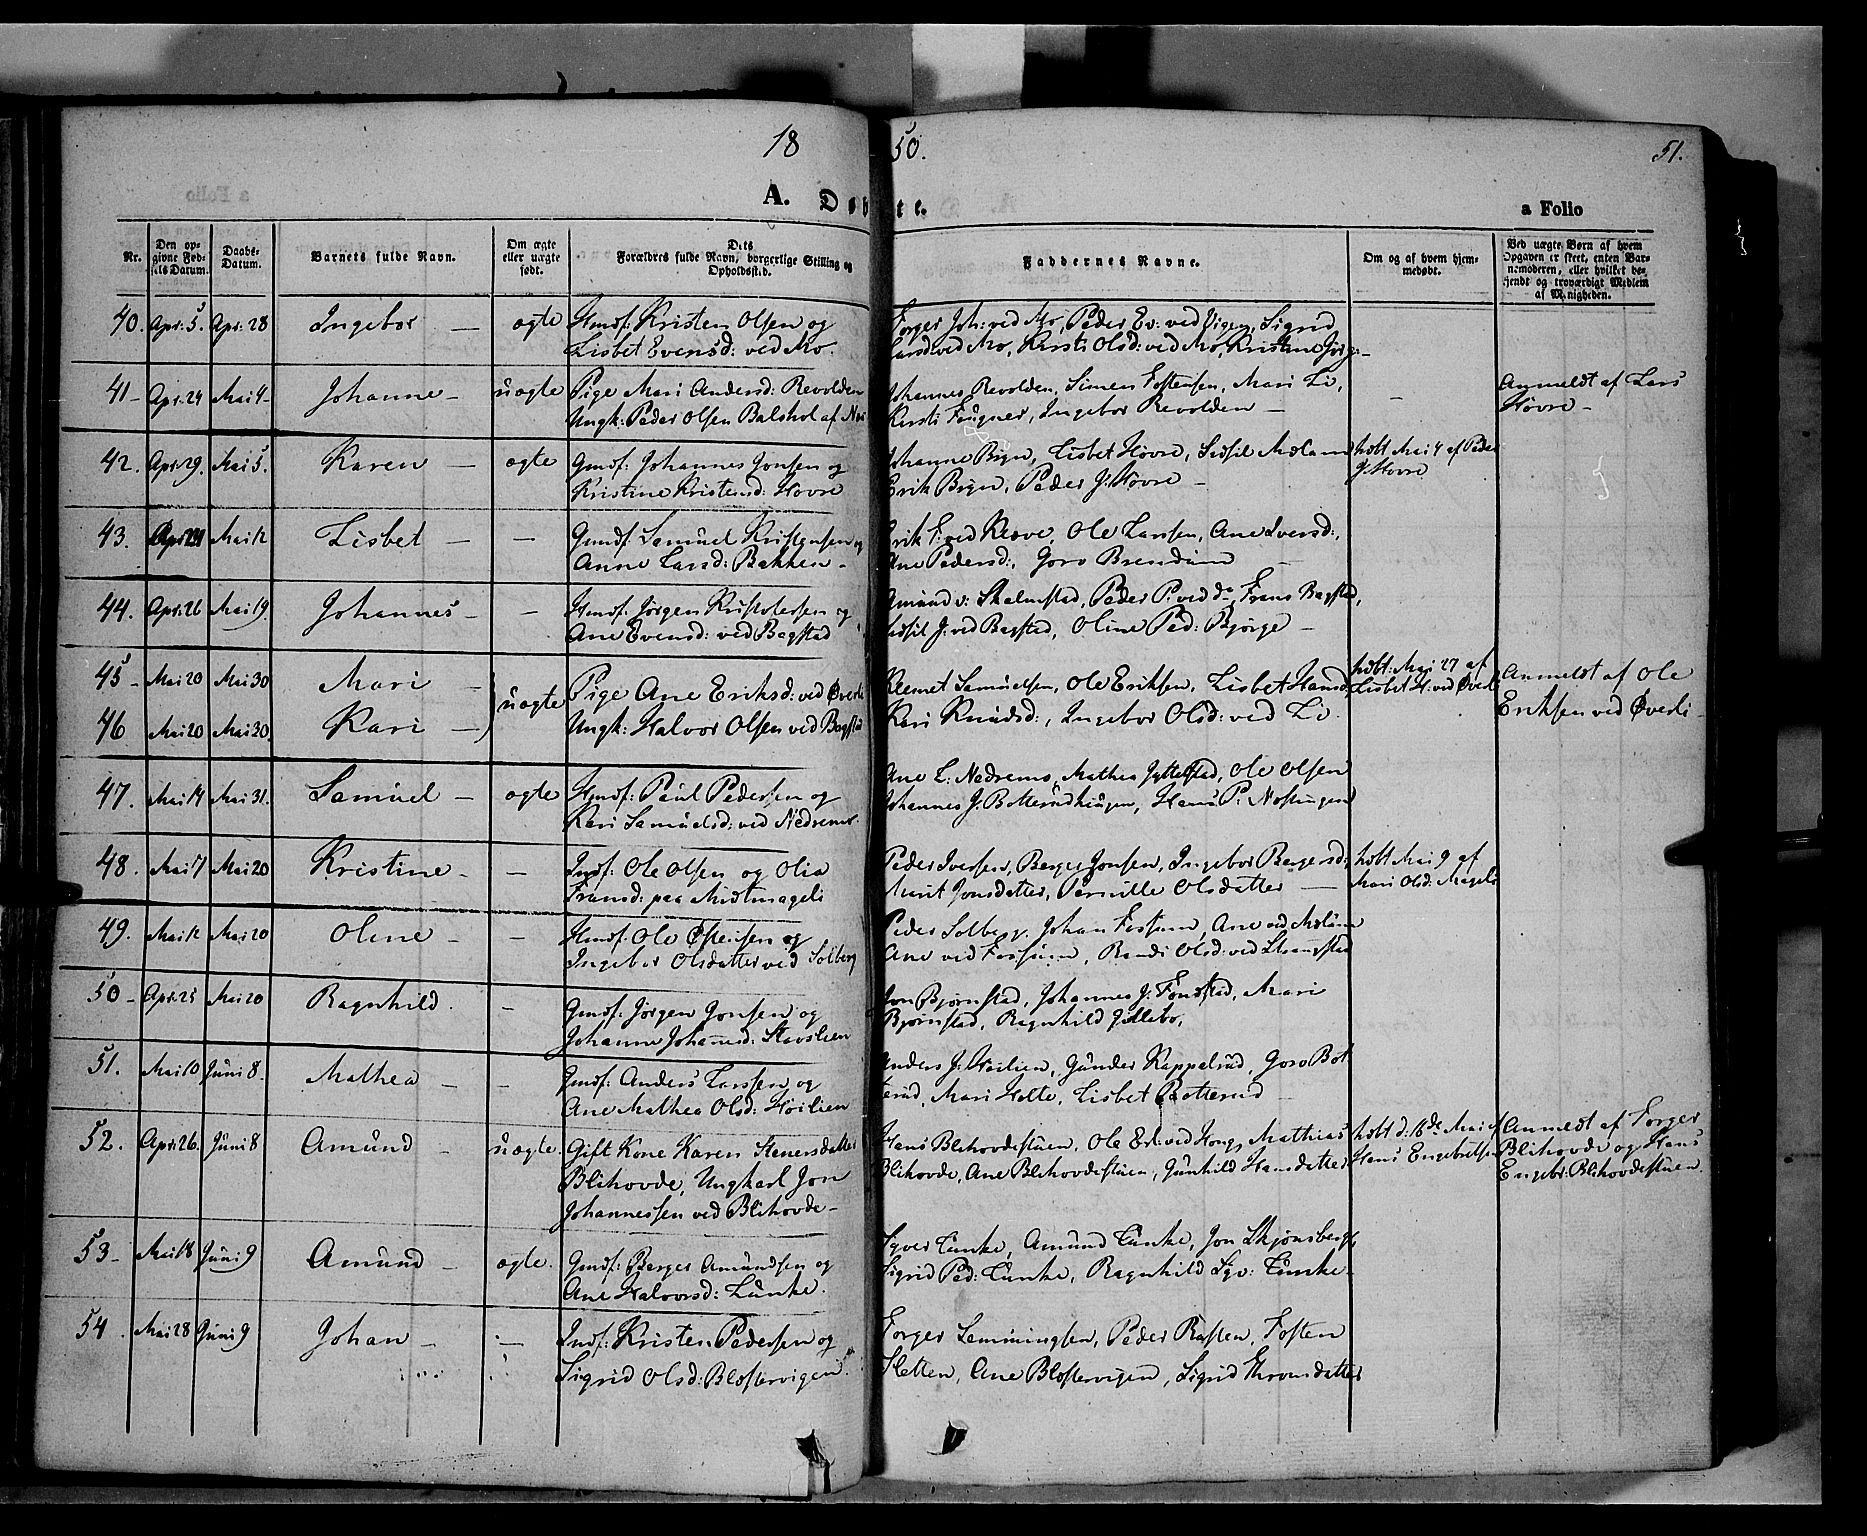 18 50. 51.
A. Døbte. a Folio
Nr. Den opgivne Fødsels Datum. Daabs-Datum. Barnets fulde Navn. Om ægte eller uægte født. Dets Forældres fulde Navn, borgerlige Stilling og Opholdssted. Faddernes Navne. Om og af hvem hjemmedøbt. Ved uægte Børn af hvem Opgaven er skeet, enten Barnemoderen, eller hvilket bekjendt og troværdigt Medlem af Menigheden.
40. Apr: 5. Apr: 28 Ingebor — ægte Hmdf: Kristen Olsen og Torger Joh: ved Mo, Peder Ev: ved Vigen, Sigrid
Lisbet Evensd: ved Mo. Larsd ved Mo, Kersti Olsd: ved Mo, Kristine Jørg: —
41 — Apr: 24 Mai 4 — Johanne — uægte Pige Mari Andersd: Revolden Johannes Revolden, Simen Tostensen, Mari Li, — Anmeldt af Lars
Ungk: Peder Olsen Balshol af Næs Kersti Faugner, Ingebor Revolden — Høvre —
42. Apr: 29. Mai 5. Karen — ægte Gmdf: Johannes Jonsen og Johanne Bryn, Lisbet Høvre, Sidsil Melum hdbt Mai 4 af Peder
Kristine Kristensd: Høvre Erik Bryn, Peder J: Høvre — J: Høvre
43. Apr: 21 Mai 12 Lisbet — — Gmdf: Samuel Kristensen og Erik E: ved Kleve, Ole Larsen, Ane Iversd:,
Anne Larsd: Bakken — Ane Pedersd:, Goro Brendum —
44. Apr: 26 Mai 19. Johannes — — Hmdf: Jørgen Kristofersen og Amund v: Skalmstad, Peder P: ved do, Frans Bagstad,
Ane Evensd: ved Bagstad Sidsil J: ved Bagstad, Oline Ped: Bjørge —
45 — Mai 20 Mai 30 Mari — uægte Pige Ane Eriksd: ved Øverli Klemet Samuelsen, Ole Eriksen, Lisbet Hansd: hdbt: Mai 27 af Anmeldt af Ole
Lisbet H: ved Øverli
46 Mai 20 Mai 30. Kari — Ungk: Halvor Olsen ved Bagstad Kari Knudsd:, Ingebor Olsd: ved Li. Eriksen ved Øverli —
47. Mai 14 Mai 31. Samuel — ægte Hmdf: Paul Pedersen og Ane L: Nedremo, Mathea Jyttelstad, Ole Olsen
Kari Samuelsd: ved Nedremo. Johannes J: Botterudhaugen, Hans P: Nossungen
48. Mai 7 Mai 20 Kristine — — Indf: Ole Olsen og Olia Peder Iversen, Berger Jonsen, Ingebor Bergersd: hdbt Mai 9 af
Fransd: paa Midtmageli Marit Jonsdatter, Pernille Olsdatter — Mari Olsd: Mageli
49. Mai 12 Mai 20 Oline — — Hmdf: Ole Østensen og Peder Solberg, Johan Fossum, Ane ved Melum
Ingebor Olsdatter ved Solberg Ane ved Fossum, Randi Olsd: ved Strangstad
50 — Apr: 25 Mai 20 Ragnhild. — Gmdf: Jørgen Jonsen og Jon Bjørnstad, Johannes J: Fonstad, Mari
Johanne Johansd: Stavslien Bjørnstad, Ragnhild Gillebo,
51. Mai 10 Juni 8. Mathea — — Gmdf: Anders Larsen og Anders J: Høilien, Gunder Kappelrud, Goro Bot-
Ane Mathea Olsd: Høilien terud, Mari Holte, Lisbet Botterud —
52. Apr: 26. Juni 8 Amund — uægte. Gift Kone Karen Stenersdatter Hans Blihovdestuen, Ole Erl: ved Houg, Mathias hdbt d: 18de Mai af Anmeldt af Torger
Blihovde, Ungkarl Jon Blihovde, Ane Blihovdestuen, Gunhild Hansdatter Hans Engebretsen Blihovde og Hans
Johannessen ved Blihovde — Engebr: Blihovdestuen.
53 — Mai 18 Juni 9 Amund — ægte. Gmdf: Berger Amundsen og Syver Lunke, Amund Lunke, Jon Skjønsberg,
Ane Halvorsd: Lunke. Sigrid Ped: Lunke, Ragnhild Syv: Lunke —
54. Mai 28 Juni 9 Johan — — Indf: Kristen Pedersen og Torger Lemmingsen, Peder Rosten, Tosten
Sigrid Olsd: Blostervigen. Sletten, Ane Blostervigen, Sigrid Thronsdatter